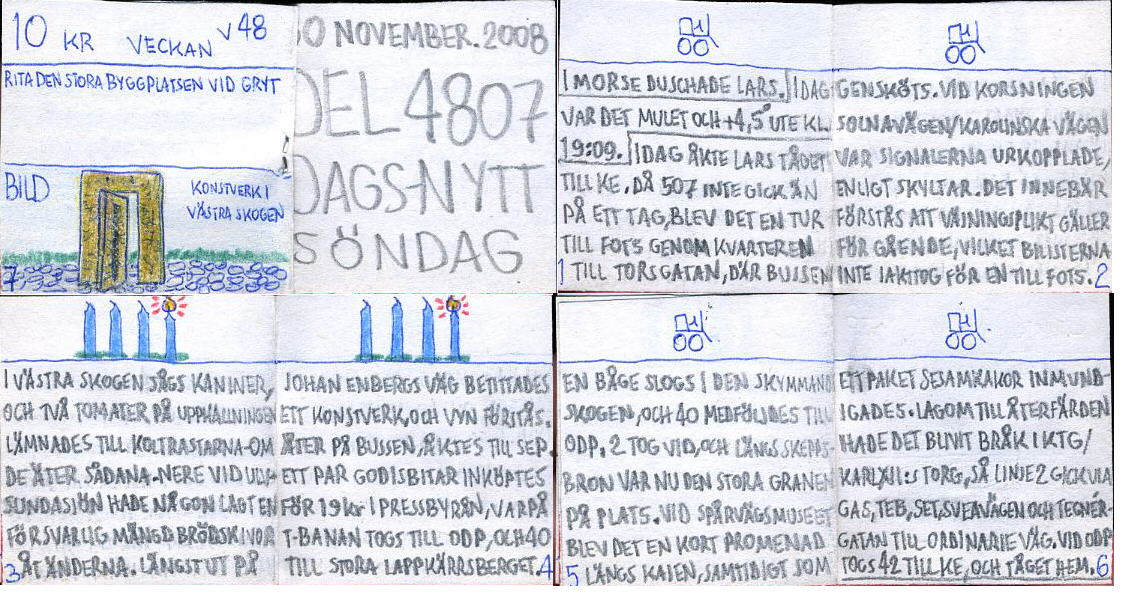 10 KR VECKAN V48
RITA DEN STORA BYGGPLATSEN VID GRYT
BILD
KONSTVERK I
VÄSTRA SKOGEN
7
30 NOVEMBER.2008
DEL 4807
DAGS-NYTT
SÖNDAG
I MORSE DUSCHADE LARS. IDAG
VAR DET MULET OCH +4,5° UTE KL
19:09. IDAG ÅKTE LARS TÅGET
TILL KE. DÅ 507 INTE GICK ÄN
PÅ ETT TAG, BLEV DET EN TUR
TILL FOTS GENOM KVARTEREN
1 TILL TORSGATAN, DÄR BUSSEN
GENSKÖTS. VID KORSNINGEN
SOLNAVÄGEN/KAROLINSKA VÄGEN
VAR SIGNALERNA URKOPPLADE,
ENLIGT SKYLTAR. DET INNEBÄR
FÖRSTÅS ATT VÄJNINGSPLIKT GÄLLER
FÖR GÅENDE, VILKET BILISTERNA
INTE IAKTTOG FÖR EN TILL FOTS. 2
I VÄSTRA SKOGEN SÅGS KANINER,
OCH TVÅ TOMATER PÅ UPPHÄLLNINGEN
LÄMNADES TILL KOLTRASTARNA-OM
DE ÄTER SÅDANA. NERE VID ULV-
SUNDASJÖN HADE NÅGON LAGT EN
FÖRSVARLIG MÄNGD BRÖDSKIVOR
3 ÅT ÄNDERNA. LÄNGST UT PÅ
JOHAN ENBERGS VÄG BETITTADES
ETT KONSTVERK, OCH VYN FÖRSTÅS.
ÅTER PÅ BUSSEN, ÅKTES TILL SEP.
ETT PAR GODISBITAR INKÖPTES
FÖR 19 kr I PRESSBYRÅN, VARPÅ
T-BANAN TOGS TILL ODP, OCH 40
TILL STORA LAPPKÄRRSBERGET. 4
EN BÅGE SLOGS I DEN SKYMMAND
SKOGEN, OCH 40 MEDFÖLJDES TILL
ODP. 2 TOG VID, OCH LÄNGS SKEPPS-
BRON VAR NU DEN STORA GRANEN
PÅ PLATS. VID SPÅRVÄGSMUSEET
BLEV DET EN KORT PROMENAD
5 LÄNGS KAJEN, SAMTIDIGT SOM
ETT PAKET SESAMKAKOR INMUND-
IGADES. LAGOM TILL ÅTERFÄRDEN
HADE DET BLIVIT BRÅK I KTG/
KARL XII:s TORG, SÅ LINJE 2 GICK VIA
GAS, TEB, SET, SVEAVÄGEN OCH TEGNÉR-
GATAN TILL ORDINARIE VÄG. VID ODP
TOGS 42 TILL KE, OCH TÅGET HEM. 6